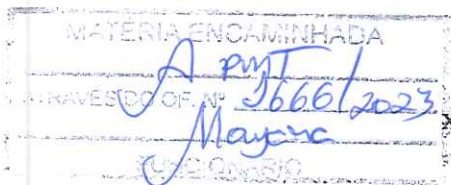 MATÉRIA ENCAMINHADA
A PMT
ATRAVÉS DO OF. Nº 1666/2023
Mayara
FUNCIONÁRIO